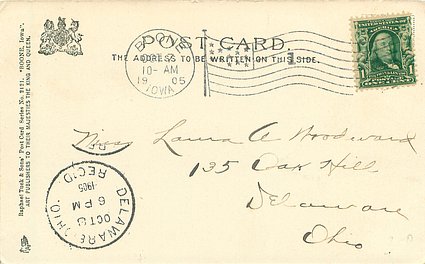 POST CARD.
THE ADDRESS TO BE WRITTEN ON THIS SIDE.
BOONE
10-AM
19 05
IOWA
Raphael Tuck & Sons' Post Card Series No. 2151. "BOONE, Iowa".
ART PUBLISHERS TO THEIR MAJESTIES THE KING AND QUEEN.
Miss Laura A Woodward
135 Oak Hill
Delaware
Ohio
DELAWARE, OHIO.
OCT 8
6 PM
1905
REC'D